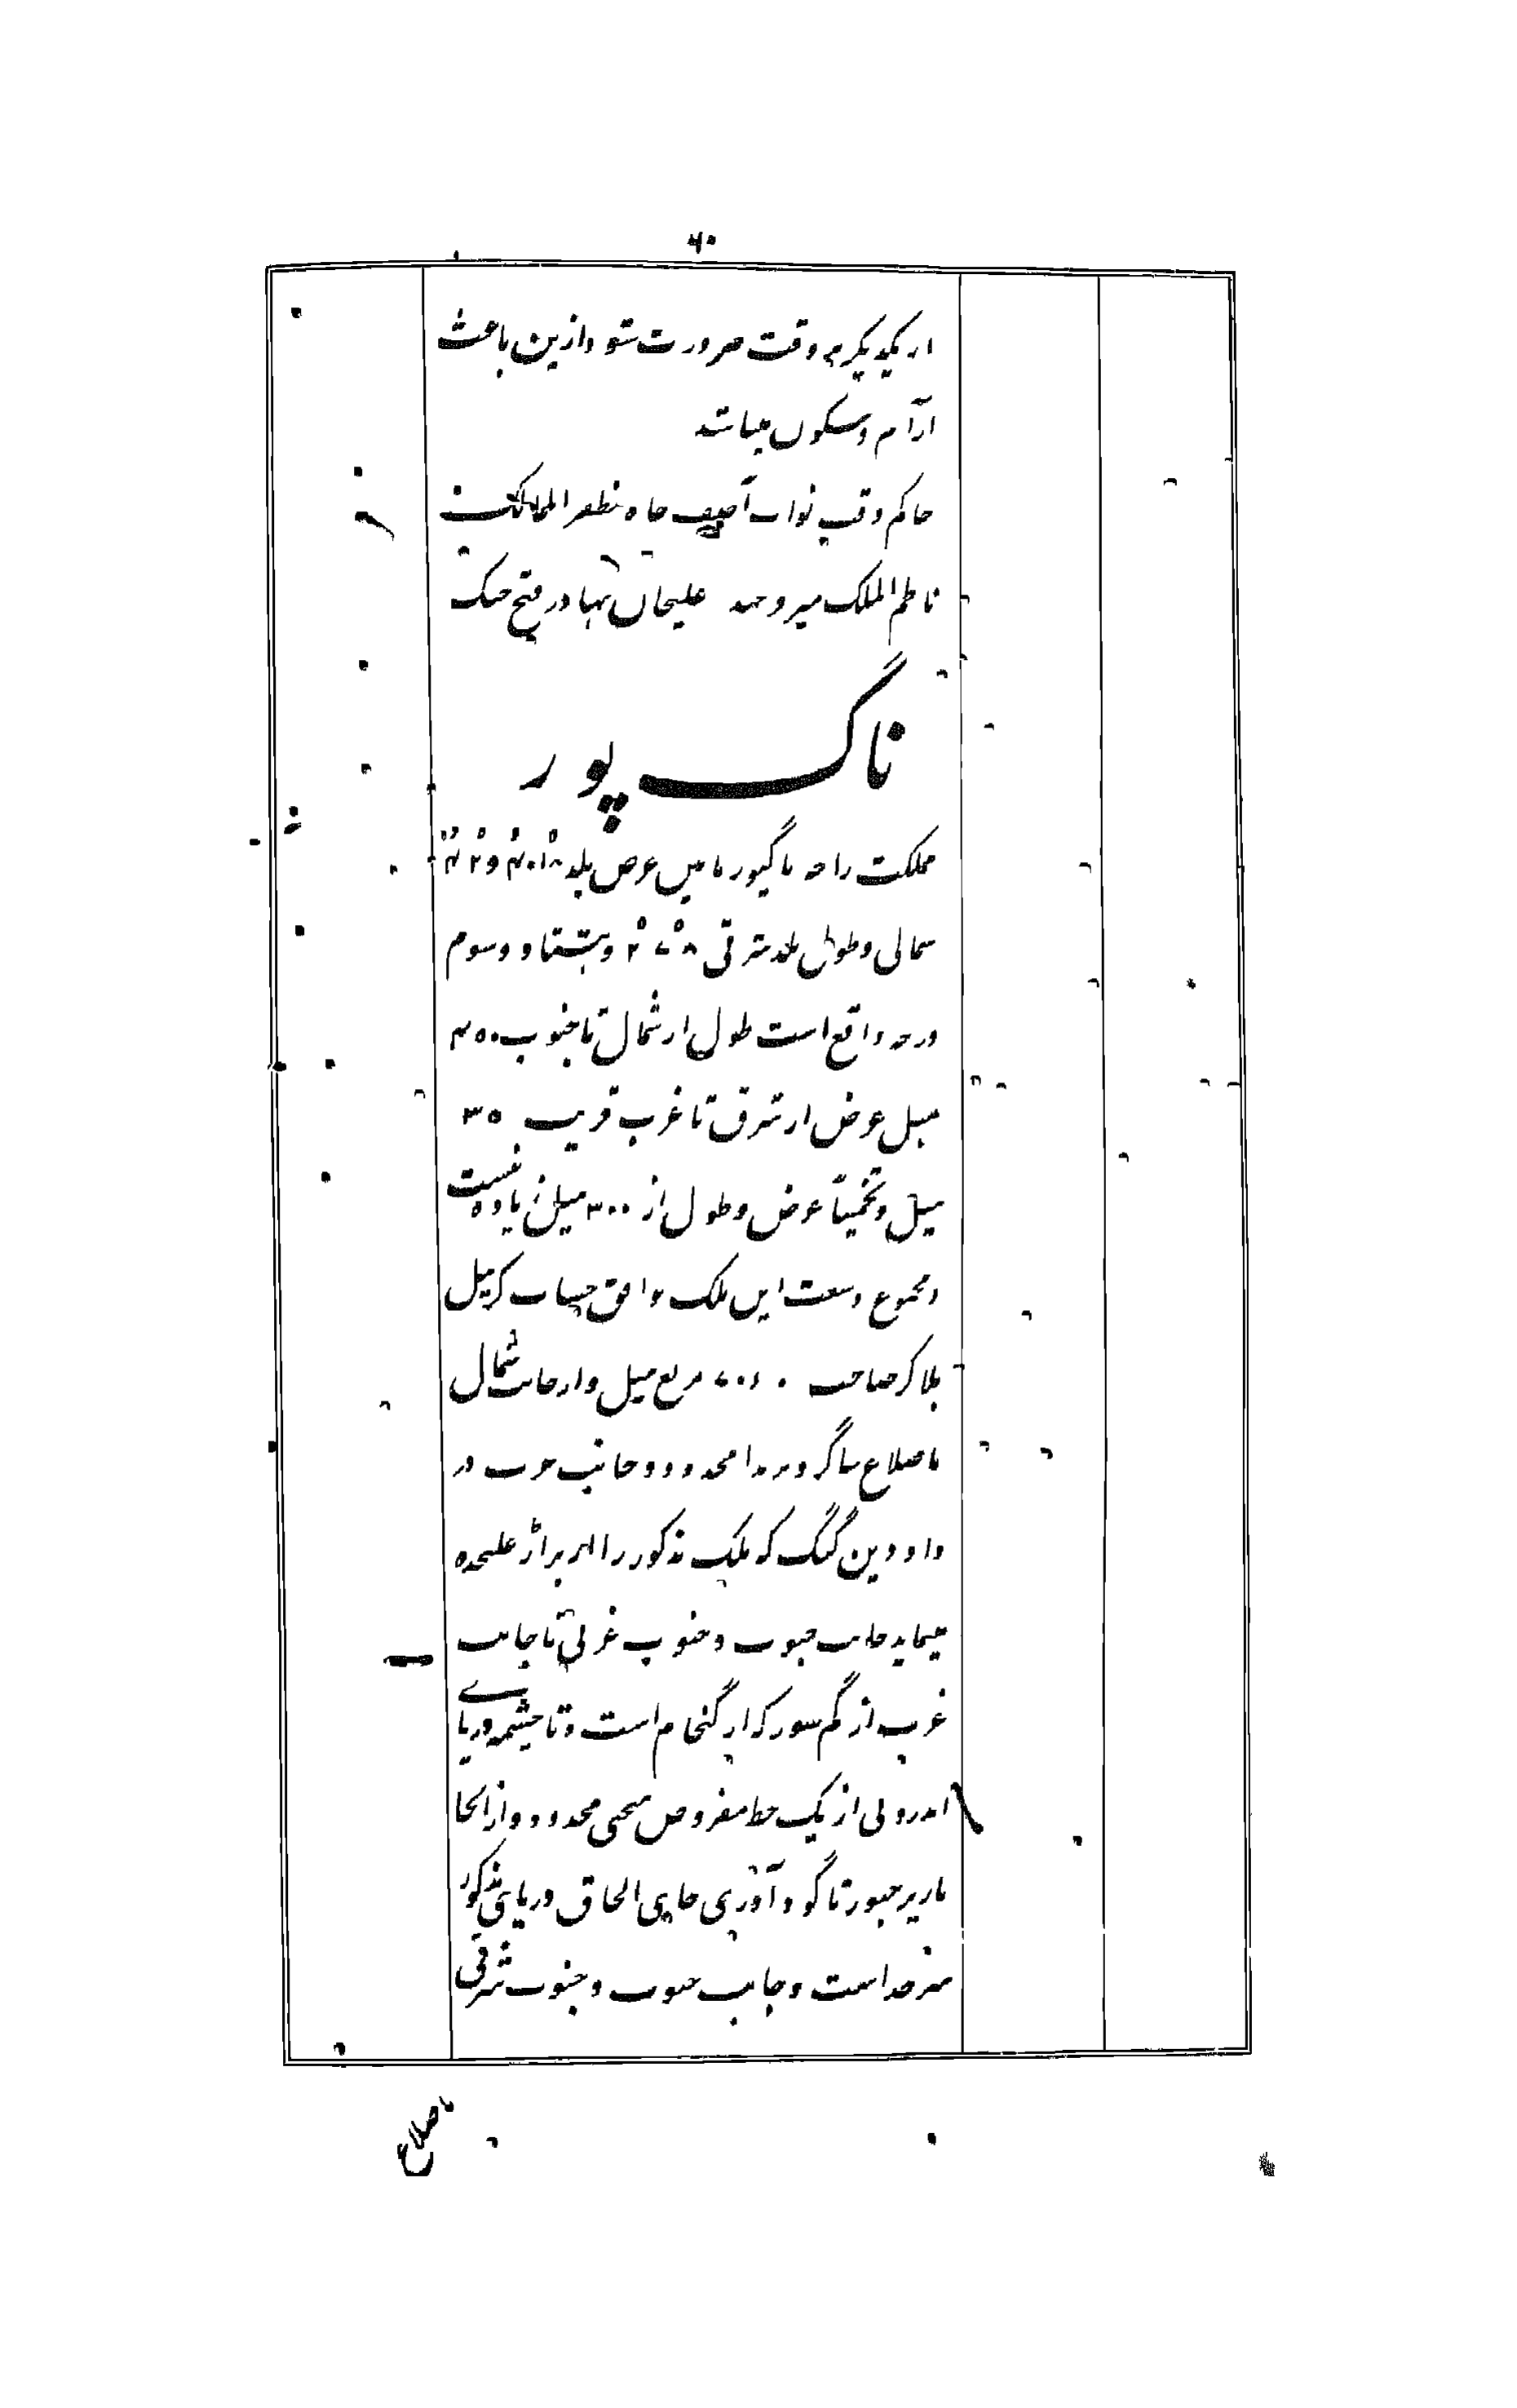 ۶۰
از یکدیگر در وقت ضرورت شود ازین باعث
آرام و سکون میباشد
حاکم وقت نواب آصف جاه مظفر الممالک
ناظم الملک میر علیخان بهادر فتح جنگ
ناگ پور
مملکت راجه ناگپور مابین عرض بلد
شمالی و طول بلد شرقی و هشتاد و سوم
درجه واقع است طول از شمال تا جنوب ۳۵۰
میل عرض از شرق تا غرب قریب ۳۵
میل و تخمیناً عرض و طول از ۳۰۰ میل زیاده نیست
و مجموع وسعت این ملک موافق حساب کرنیل
بلاکر صاحب مربع میل و از جانب شمال
باضلاع ساگر و نربدا محدود و جانب غرب در
دا و وین گنگ که ملک مذکور را از برار علیحده
مینماید جانب جنوب و جنوب غربی تا جانب
غرب از گم سور که از گنجام است و تا چشمه دریای
اندرونی از یک خط مفروض منحنی محدود و از آنجا
تا گوداوری جای الحاق دریای مذکور
سرحد است و جانب جنوب و جنوب شرقی
باضلاع